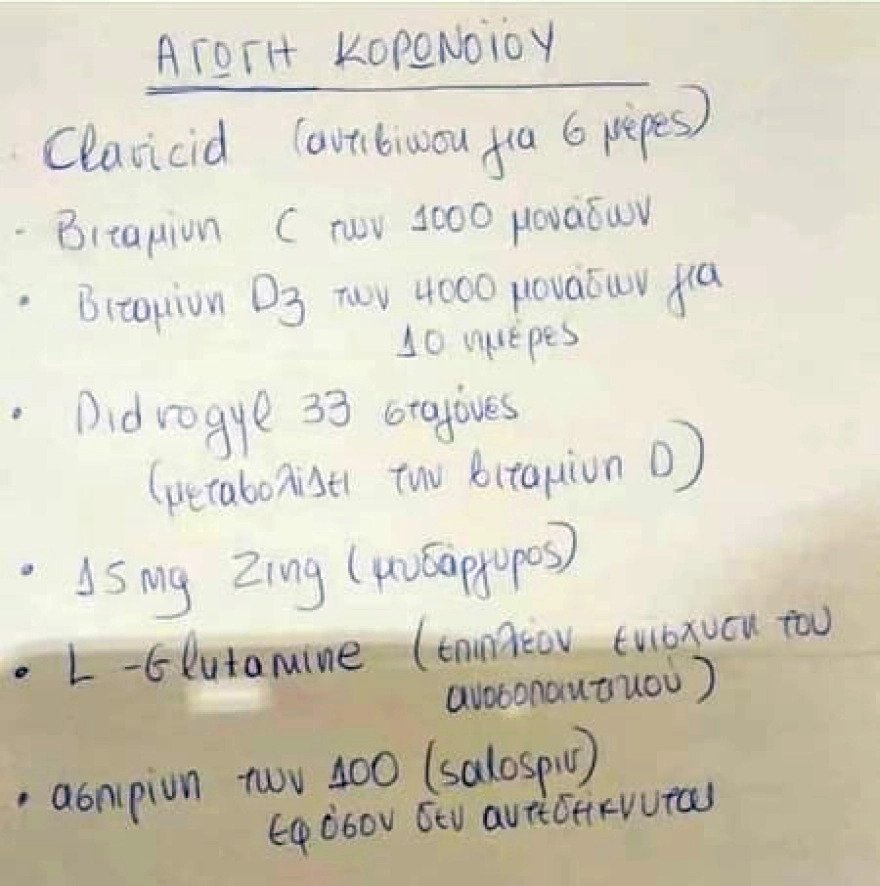 ΑΓΩΓΗ ΚΟΡΩΝΟΪΟΥ
Claricid (αντιβίωση για 6 μέρες)
- Βιταμίνη C των 1000 μονάδων
• Βιταμίνη D3 των 4000 μονάδων για
10 ημέρες
• Didrogyl 33 σταγόνες
(μεταβολίζει την βιταμίνη D)
• 15 mg Zing (μυδάργυρος)
• L-Glutamine (επιπλέον ενίσχυση του
ανοσοποιητικού)
• ασπιρίνη των 100 (salospir)
εφόσον δεν αντεδείκνυται